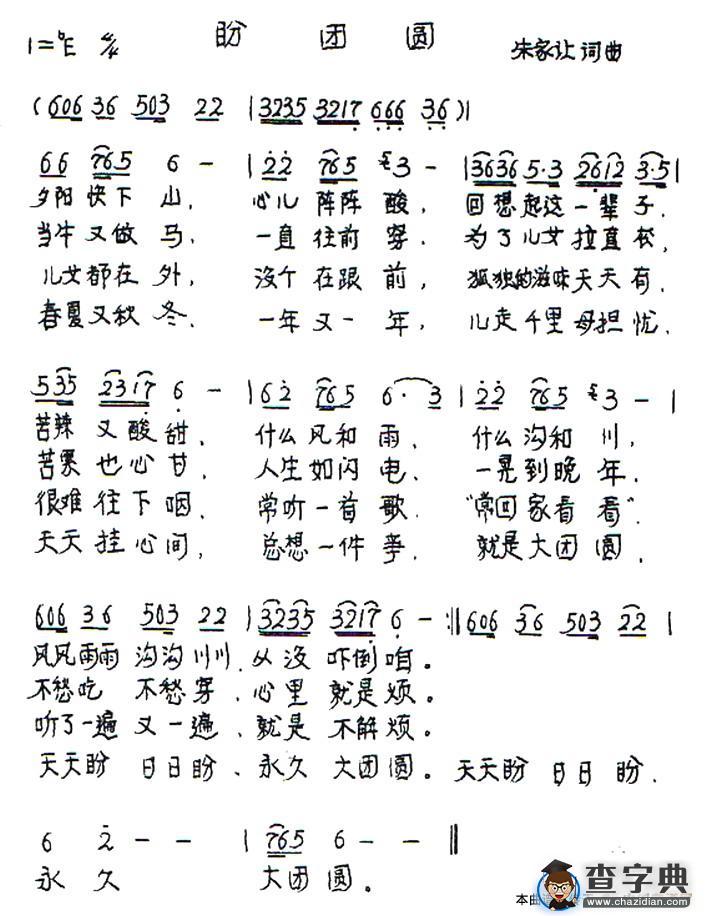 1=♭E 4/4 盼团圆 朱家让 词曲
(606 36 503 22 | 3235 3217 666 36) |
66 765 6 - | 22 765 3 - | 3636 5·3 2612 3·5 |
夕阳快下山, 心儿阵阵酸, 回想起这一辈子,
当牛又做马, 一直往前穿, 为了儿女拉直
儿女都在外, 没个在跟前, 孤独的滋味天天有,
春夏又秋冬, 一年又一年, 儿走千里母担忧,
535 2317 6 - | 62 765 6·3 | 22 765 3 - |
苦辣又酸甜, 什么风和雨, 什么沟和川,
苦累也心甘, 人生如闪电, 一晃到晚年,
很难往下咽, 常听一首歌, “常回家看看”,
天天挂心间, 总想一件事, 就是大团圆,
606 36 503 22 | 3235 3217 6 - :‖ 606 36 503 22 |
风风雨雨沟沟川川, 从没吓倒咱。
不愁吃 不愁穿, 心里就是烦。
听了一遍又一遍, 就是不解烦。
天天盼 日日盼, 永久大团圆。天天盼 日日盼,
6 2 - - | 765 6 - - ‖
永久 大团圆。
本曲
查字典
www.chazidian.com